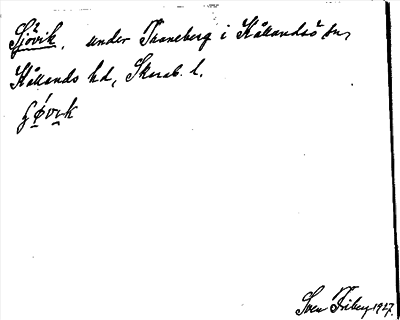 Sjövik, under Traneberg i Kållandsö sn,
Kållands hd, Skarab. l.
Sven Friberg 1927.